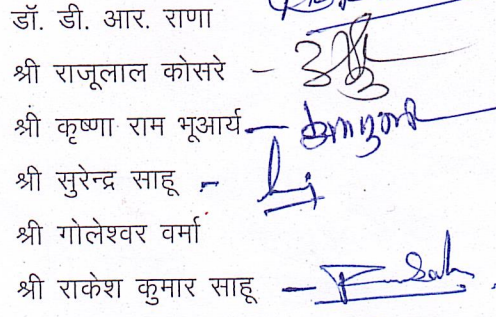 डॉ. डी. आर. राणा
श्री राजूलाल कोसरे –
श्री कृष्णा राम भूआर्य –
श्री सुरेन्द्र साहू –
श्री गोलेश्वर वर्मा
श्री राकेश कुमार साहू –